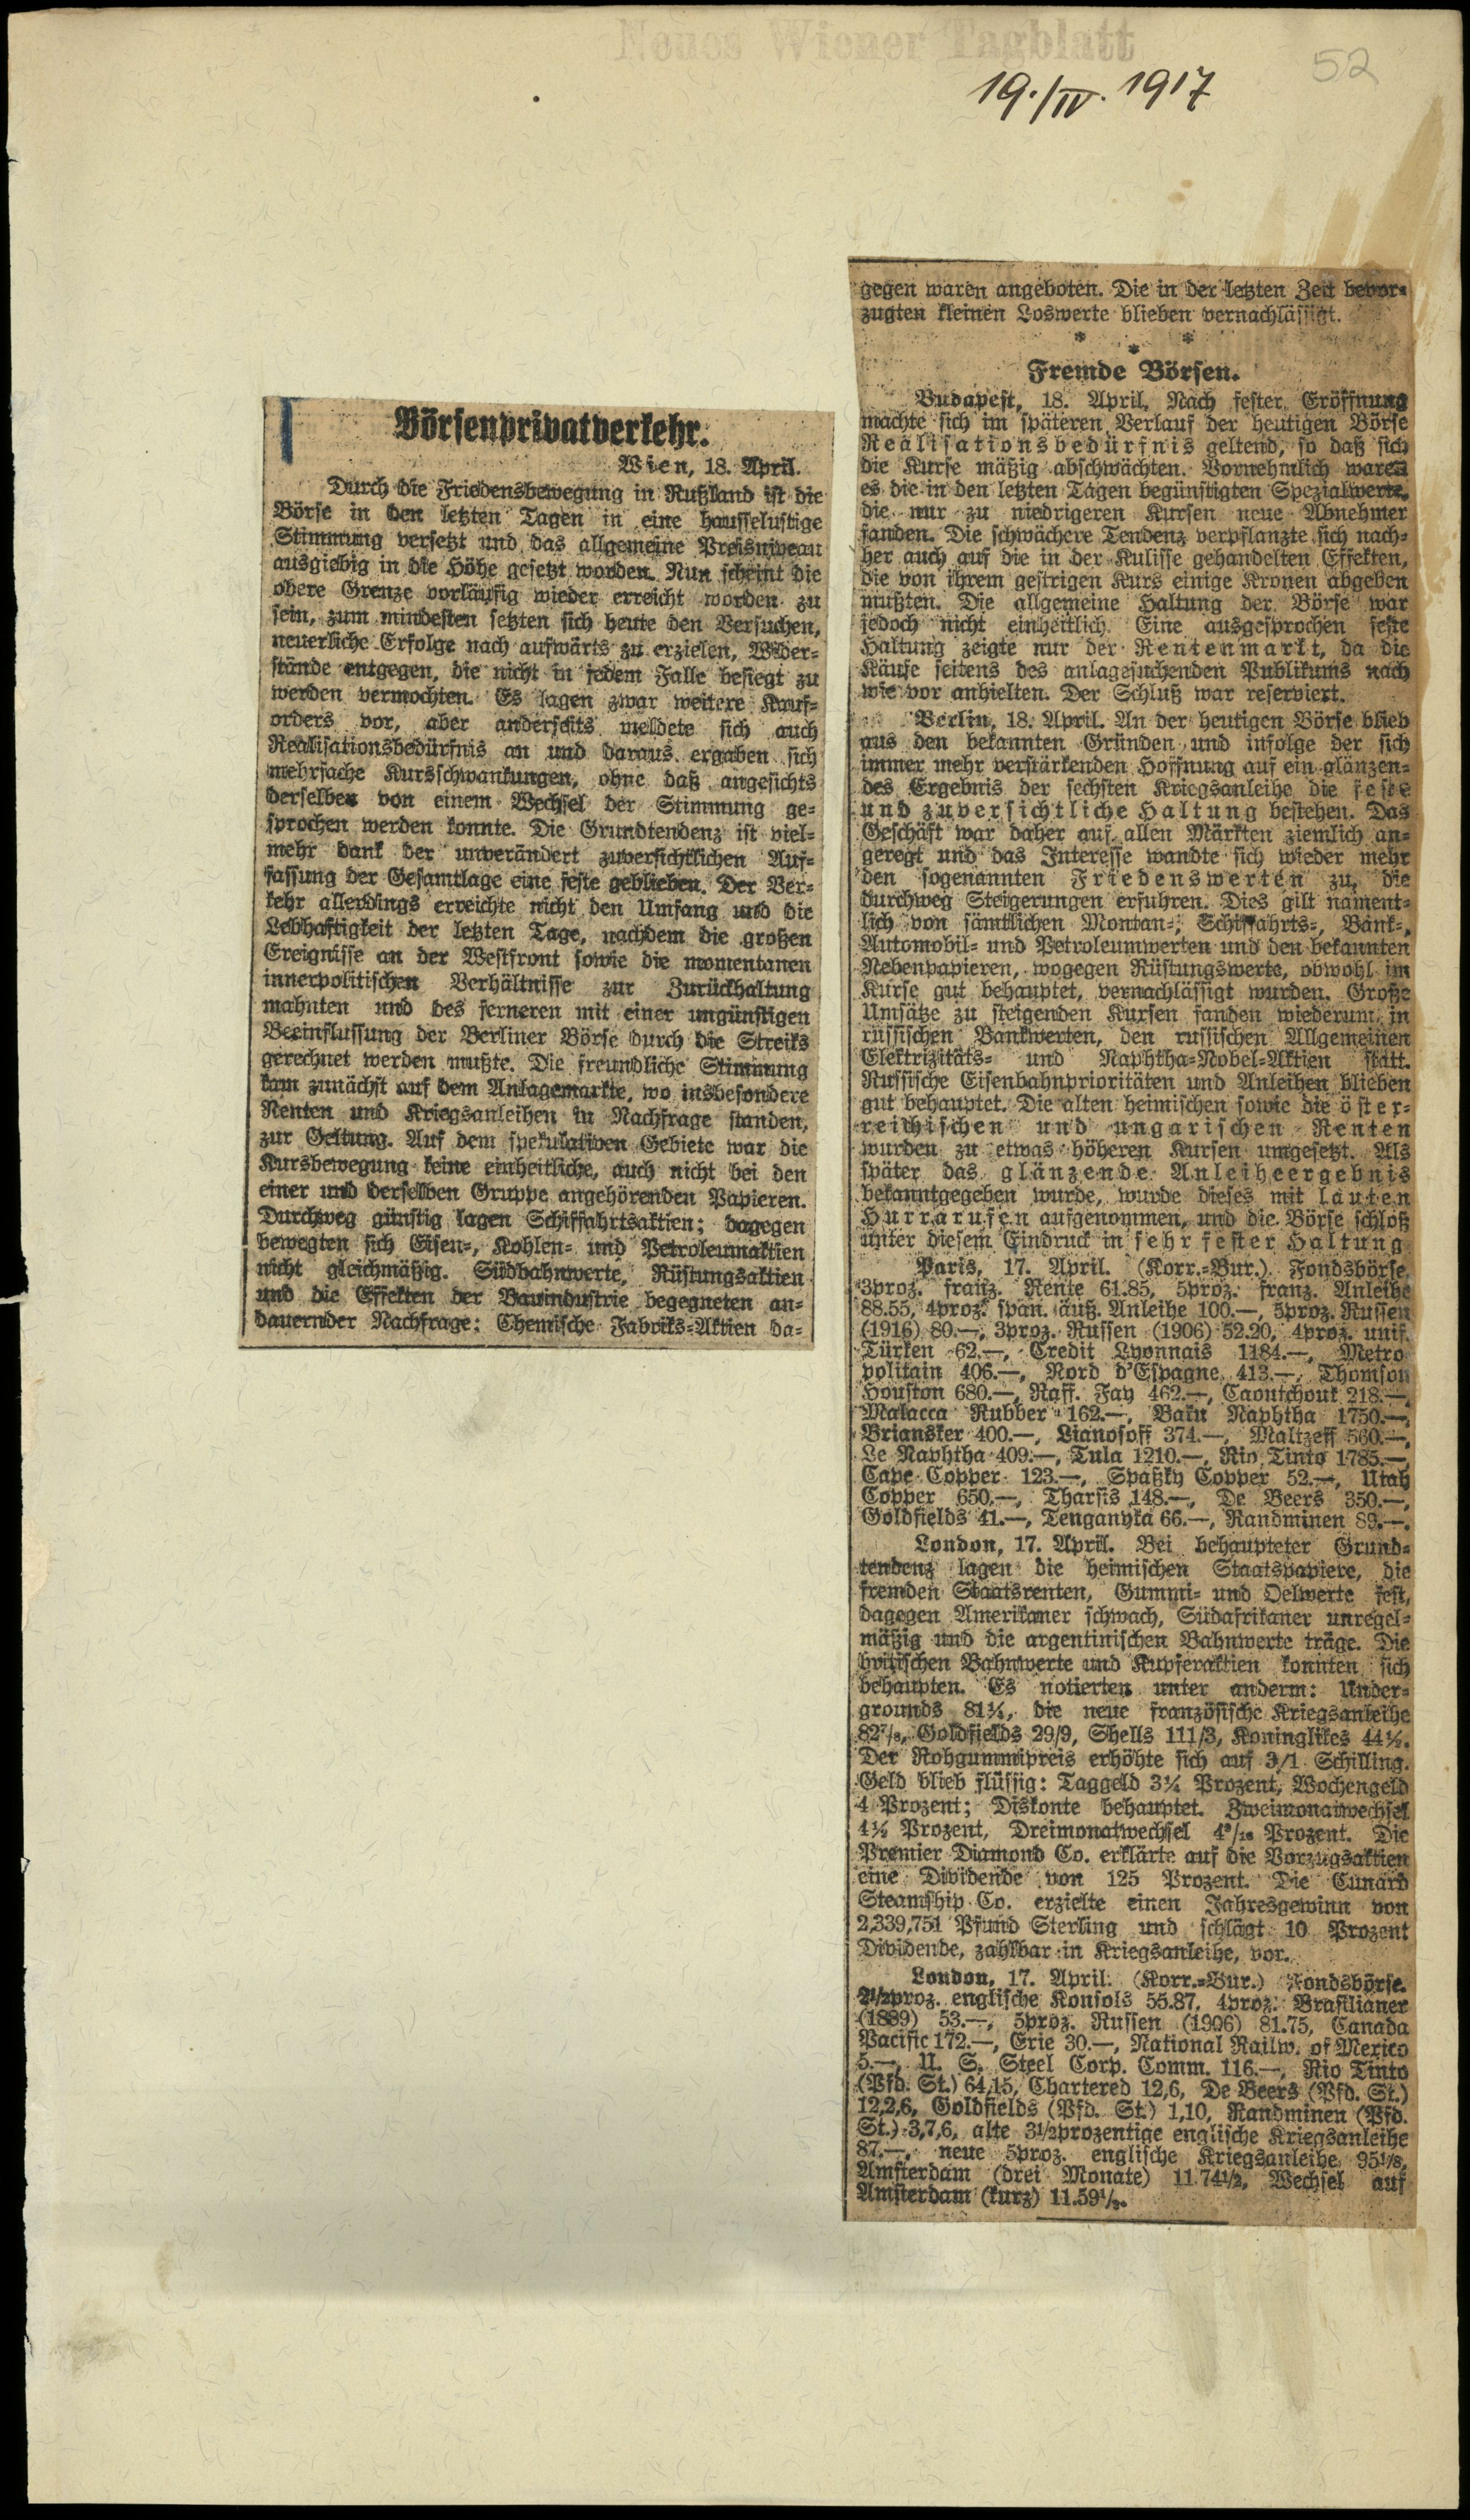 Neues Wiener Tagblatt
52
19./IV. 1917
Börsenprivatverkehr.
Wien, 18. April.
Durch die Friedensbewegung in Rußland ist die
Börse in den letzten Tagen in eine hausselustige
Stimmung versetzt und das allgemeine Preisniveau
ausgiebig in die Höhe gesetzt worden. Nun scheint die
obere Grenze vorläufig wieder erreicht worden zu
sein, zum mindesten setzten sich heute den Versuchen,
neuerliche Erfolge nach aufwärts zu erzielen, Wider-
stände entgegen, die nicht in jedem Falle besiegt zu
werden vermochten. Es lagen zwar weitere Kauf-
orders vor, aber anderseits meldete sich auch
Realisationsbedürfnis an und daraus ergaben sich
mehrfache Kursschwankungen, ohne daß angesichts
derselben von einem Wechsel der Stimmung ge-
sprochen werden konnte. Die Grundtendenz ist viel-
mehr dank der unverändert zuversichtlichen Auf-
fassung der Gesamtlage eine feste geblieben. Der Ver-
kehr allerdings erreichte nicht den Umfang und die
Lebhaftigkeit der letzten Tage, nachdem die großen
Ereignisse an der Westfront sowie die momentanen
innerpolitischen Verhältnisse zur Zurückhaltung
mahnten und des ferneren mit einer ungünstigen
Beeinflussung der Berliner Börse durch die Streiks
gerechnet werden mußte. Die freundliche Stimmung
kam zunächst auf dem Anlagemarkte, wo insbesondere
Renten und Kriegsanleihen in Nachfrage standen,
zur Geltung. Auf dem spekulativen Gebiete war die
Kursbewegung keine einheitliche, auch nicht bei den
einer und derselben Gruppe angehörenden Papieren.
Durchweg günstig lagen Schiffahrtsaktien; dagegen
bewegten sich Eisen-, Kohlen- und Petroleumaktien
nicht gleichmäßig. Südbahnwerte, Rüstungsaktien
und die Effekten der Bauindustrie begegneten an-
dauernder Nachfrage; Chemische Fabriks-Aktien da-
gegen waren angeboten. Die in der letzten Zeit bevor-
zugten kleinen Loswerte blieben vernachlässigt.
* * *
Fremde Börsen.
Budapest, 18. April. Nach fester Eröffnung
machte sich im späteren Verlauf der heutigen Börse
Realisationsbedürfnis geltend, so daß sich
die Kurse mäßig abschwächten. Vornehmlich waren
es die in den letzten Tagen begünstigten Spezialwerte,
die nur zu niedrigeren Kursen neue Abnehmer
fanden. Die schwächere Tendenz verpflanzte sich nach-
her auch auf die in der Kulisse gehandelten Effekten,
die von ihrem gestrigen Kurs einige Kronen abgeben
mußten. Die allgemeine Haltung der Börse war
jedoch nicht einheitlich. Eine ausgesprochen feste
Haltung zeigte nur der Rentenmarkt, da die
Käufe seitens des anlagesuchenden Publikums nach
wie vor anhielten. Der Schluß war reserviert.
Berlin, 18. April. An der heutigen Börse blieb
aus den bekannten Gründen und infolge der sich
immer mehr verstärkenden Hoffnung auf ein glänzen-
des Ergebnis der sechsten Kriegsanleihe die feste
und zuversichtliche Haltung bestehen. Das
Geschäft war daher auf allen Märkten ziemlich an-
geregt und das Interesse wandte sich wieder mehr
den sogenannten Friedenswerten zu, die
durchweg Steigerungen erfuhren. Dies gilt nament-
lich von sämtlichen Montan-, Schiffahrts-, Bank-,
Automobil- und Petroleumwerten und den bekannten
Nebenpapieren, wogegen Rüstungswerte, obwohl im
Kurse gut behauptet, vernachlässigt wurden. Große
Umsätze zu steigenden Kursen fanden wiederum in
russischen Bankwerten, den russischen Allgemeinen
Elektrizitäts- und Naphtha-Nobel-Aktien statt.
Russische Eisenbahnprioritäten und Anleihen blieben
gut behauptet. Die alten heimischen sowie die öster-
reichischen und ungarischen Renten
wurden zu etwas höheren Kursen umgesetzt. Als
später das glänzende Anleiheergebnis
bekanntgegeben wurde, wurde dieses mit lauten
Hurrarufen aufgenommen, und die Börse schloß
unter diesem Eindruck in sehr fester Haltung
Paris, 17. April. (Korr.-Bur.) Fondsbörse.
3proz. franz. Rente 61.85, 5proz. franz. Anleihe
88.55, 4proz. span. äuß. Anleihe 100.—, 5proz. Russen
(1916) 80.—, 3proz. Russen (1906) 52.20, 4proz. unif.
Türken 62.—, Credit Lyonnais 1184.—, Metro
politain 406.—, Nord d'Espagne 413.—, Thomson
Houston 680.—, Raff. Fay 462.—, Caoutchouk 218.—,
Malacca Rubber 162.—, Baku Naphtha 1750.—,
Briansker 400.—, Lianosoff 374.—, Maltzeff 560.—,
Le Naphtha 409.—, Tula 1210.—, Rio Tinto 1785.—,
Cape Copper 123.—, Spaßky Copper 52.—, Utah
Copper 650.—, Tharsis 148.—, De Beers 350.—,
Goldfields 41.—, Tenganyka 66.—, Randminen 89.—.
London, 17. April. Bei behaupteter Grund-
tendenz lagen die heimischen Staatspapiere, die
fremden Staatsrenten, Gummi- und Oelwerte fest,
dagegen Amerikaner schwach, Südafrikaner unregel-
mäßig und die argentinischen Bahnwerte träge. Die
britischen Bahnwerte und Kupferaktien konnten sich
behaupten. Es notierten unter anderm: Under-
grounds 81¼, die neue französische Kriegsanleihe
82⅞, Goldfields 29/9, Shells 111/3, Koninglikes 44½.
Der Rohgummipreis erhöhte sich auf 3/1 Schilling.
Geld blieb flüssig: Taggeld 3¼ Prozent, Wochengeld
4 Prozent; Diskonte behauptet. Zweimonatwechsel
4½ Prozent, Dreimonatwechsel 4⁹/₁₆ Prozent. Die
Premier Diamond Co. erklärte auf die Vorzugsaktien
eine Dividende von 125 Prozent. Die Cunard
Steamship Co. erzielte einen Jahresgewinn von
2,339,751 Pfund Sterling und schlägt 10 Prozent
Dividende, zahlbar in Kriegsanleihe, vor.
London, 17. April. (Korr.-Bur.) Fondsbörse.
2½proz. englische Konsols 55.87, 4proz. Brasilianer
(1889) 53.—, 5proz. Russen (1906) 81.75, Canada
Pacific 172.—, Erie 30.—, National Railw. of Mexico
5.—, U. S. Steel Corp. Comm. 116.—, Rio Tinto
(Pfd. St.) 64,15, Chartered 12,6, De Beers (Pfd. St.)
12,2,6, Goldfields (Pfd. St.) 1,10, Randminen (Pfd.
St.) 3,7,6, alte 3½prozentige englische Kriegsanleihe
87.—, neue 5proz. englische Kriegsanleihe 95⅛,
Amsterdam (drei Monate) 11.74½, Wechsel auf
Amsterdam (kurz) 11.59½.